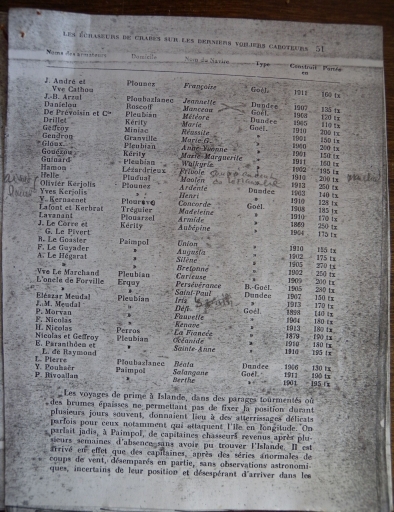 LES ÉCHASEURS DE CRABES SUR LES DERNIERS VOILIERS CABOTEURS 51
Noms des armateurs Domicile Nom du Navire Type Construit en Portée
J. André et
Vve Cathou Plounez Françoise Goél. 1911 160 tx
J.-B. Arzal Ploubazlanec Jeannette Dundee 1907 135 tx
Danielou Roscoff Manceau Goél. 1908 120 tx
De Prévoisin et Cie Pleubian Météore Dundee 1905 110 tx
Drillet Kérity Marie Goél. 1910 200 tx
Geffroy Miniac Réussite » 1901 150 tx
Gendrou Granville Marie-G. » 1900 200 tx
Gloux Pleubian Anne-Yvonne » 1911 150 tx
Gouézou Kérity Marie-Marguerite » 1911 160 tx
Guinard Pleubian Walkyrie » 1902 195 tx
Hamon Lézardrieux » 1910 200 tx
Helle Pludual Moulen » 1913 175 tx
Olivier Kerjolis Plounez Ardente Dundee 1903 250 tx
Yves Kerjolis » Henri » 140 tx
Y. Kernaenet Concorde Goél. 1910 228 tx
Lafont et Kerbrat Tréguier Madeleine » 1908 185 tx
Lavanant Plouarzel Armide » 1910 170 tx
J. Le Corre et Kérity Aubépine » 1869 250 tx
G. Le Pivert » 1904 175 tx
R. Le Goaster Paimpol Union » 1910 195 tx
F. Le Guyader » Augusta » 1902 175 tx
A. Le Hégarat » Silène » 1905 270 tx
» » Bretonne » 1902 250 tx
Vve Le Marchand Pleubian Carieuse » 1909 200 tx
L'oncle de Forville Erquy Persévérance B.-Goél. 1905 280 tx
» » Saint-Paul Dundee 1907 150 tx
Eléazar Meudal Pleubian Iris » 1913 170 tx
J.-M. Meudal » Défi Goél. 1898 140 tx
P. Morvan » Fauvette » 1904 180 tx
F. Nicolas » Kenavo » 1913 180 tx
H. Nicolas Perros La Fiancée » 1879 190 tx
Nicolas et Geffroy Pleubian Océanide » 1910 180 tx
E. Paranthöen et » Sainte-Anne » 1910 195 tx
L. de Raymond
L. Pierre Ploubazlanec Béota Dundee 1906 130 tx
Y. Pouhaër Paimpol Salangane Goél. 1911 190 tx
P. Rivoallan » Berthe » 1901 195 tx
Les voyages de prime à Islande, dans des parages tourmentés où
des brumes épaisses ne permettant pas de fixer la position durant
plusieurs jours souvent, donnaient lieu à des atterrissages délicats
parfois pour ceux notamment qui attaquent l'île en longitude. On
parlait jadis, à Paimpol, de capitaines chasseurs revenus après plu-
sieurs semaines d'absence sans avoir pu trouver l'Islande. Il est
arrivé en effet que des capitaines, après des séries anormales de
coups de vent, désemparés en partie, sans observations astronomi-
ques, incertains de leur position et désespérant d'arriver dans les